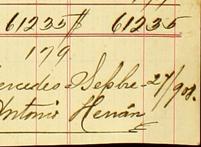 61235 $ 61235
179
ercedes Sepbre 27/901.
Antonio Henán